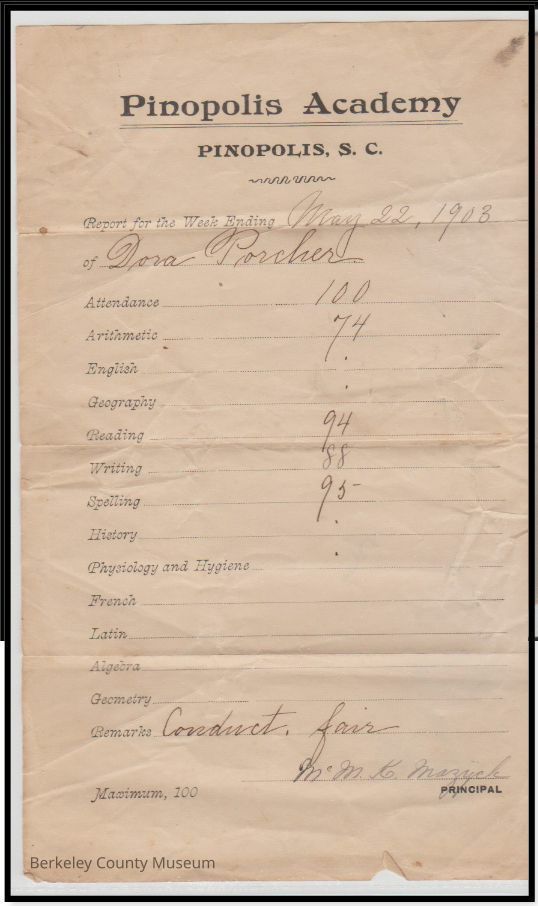 Pinopolis Academy
PINOPOLIS, S. C.
Report for the Week Ending May 22, 1903
of Dora Porcher
Attendance 100
Arithmetic 74
English .
Geography .
Reading 94
Writing 88
Spelling 95
History .
Physiology and Hygiene .
French
Latin
Algebra
Geometry
Remarks Conduct. fair
M. K. Mazyck
Maximum, 100 PRINCIPAL
Berkeley County Museum